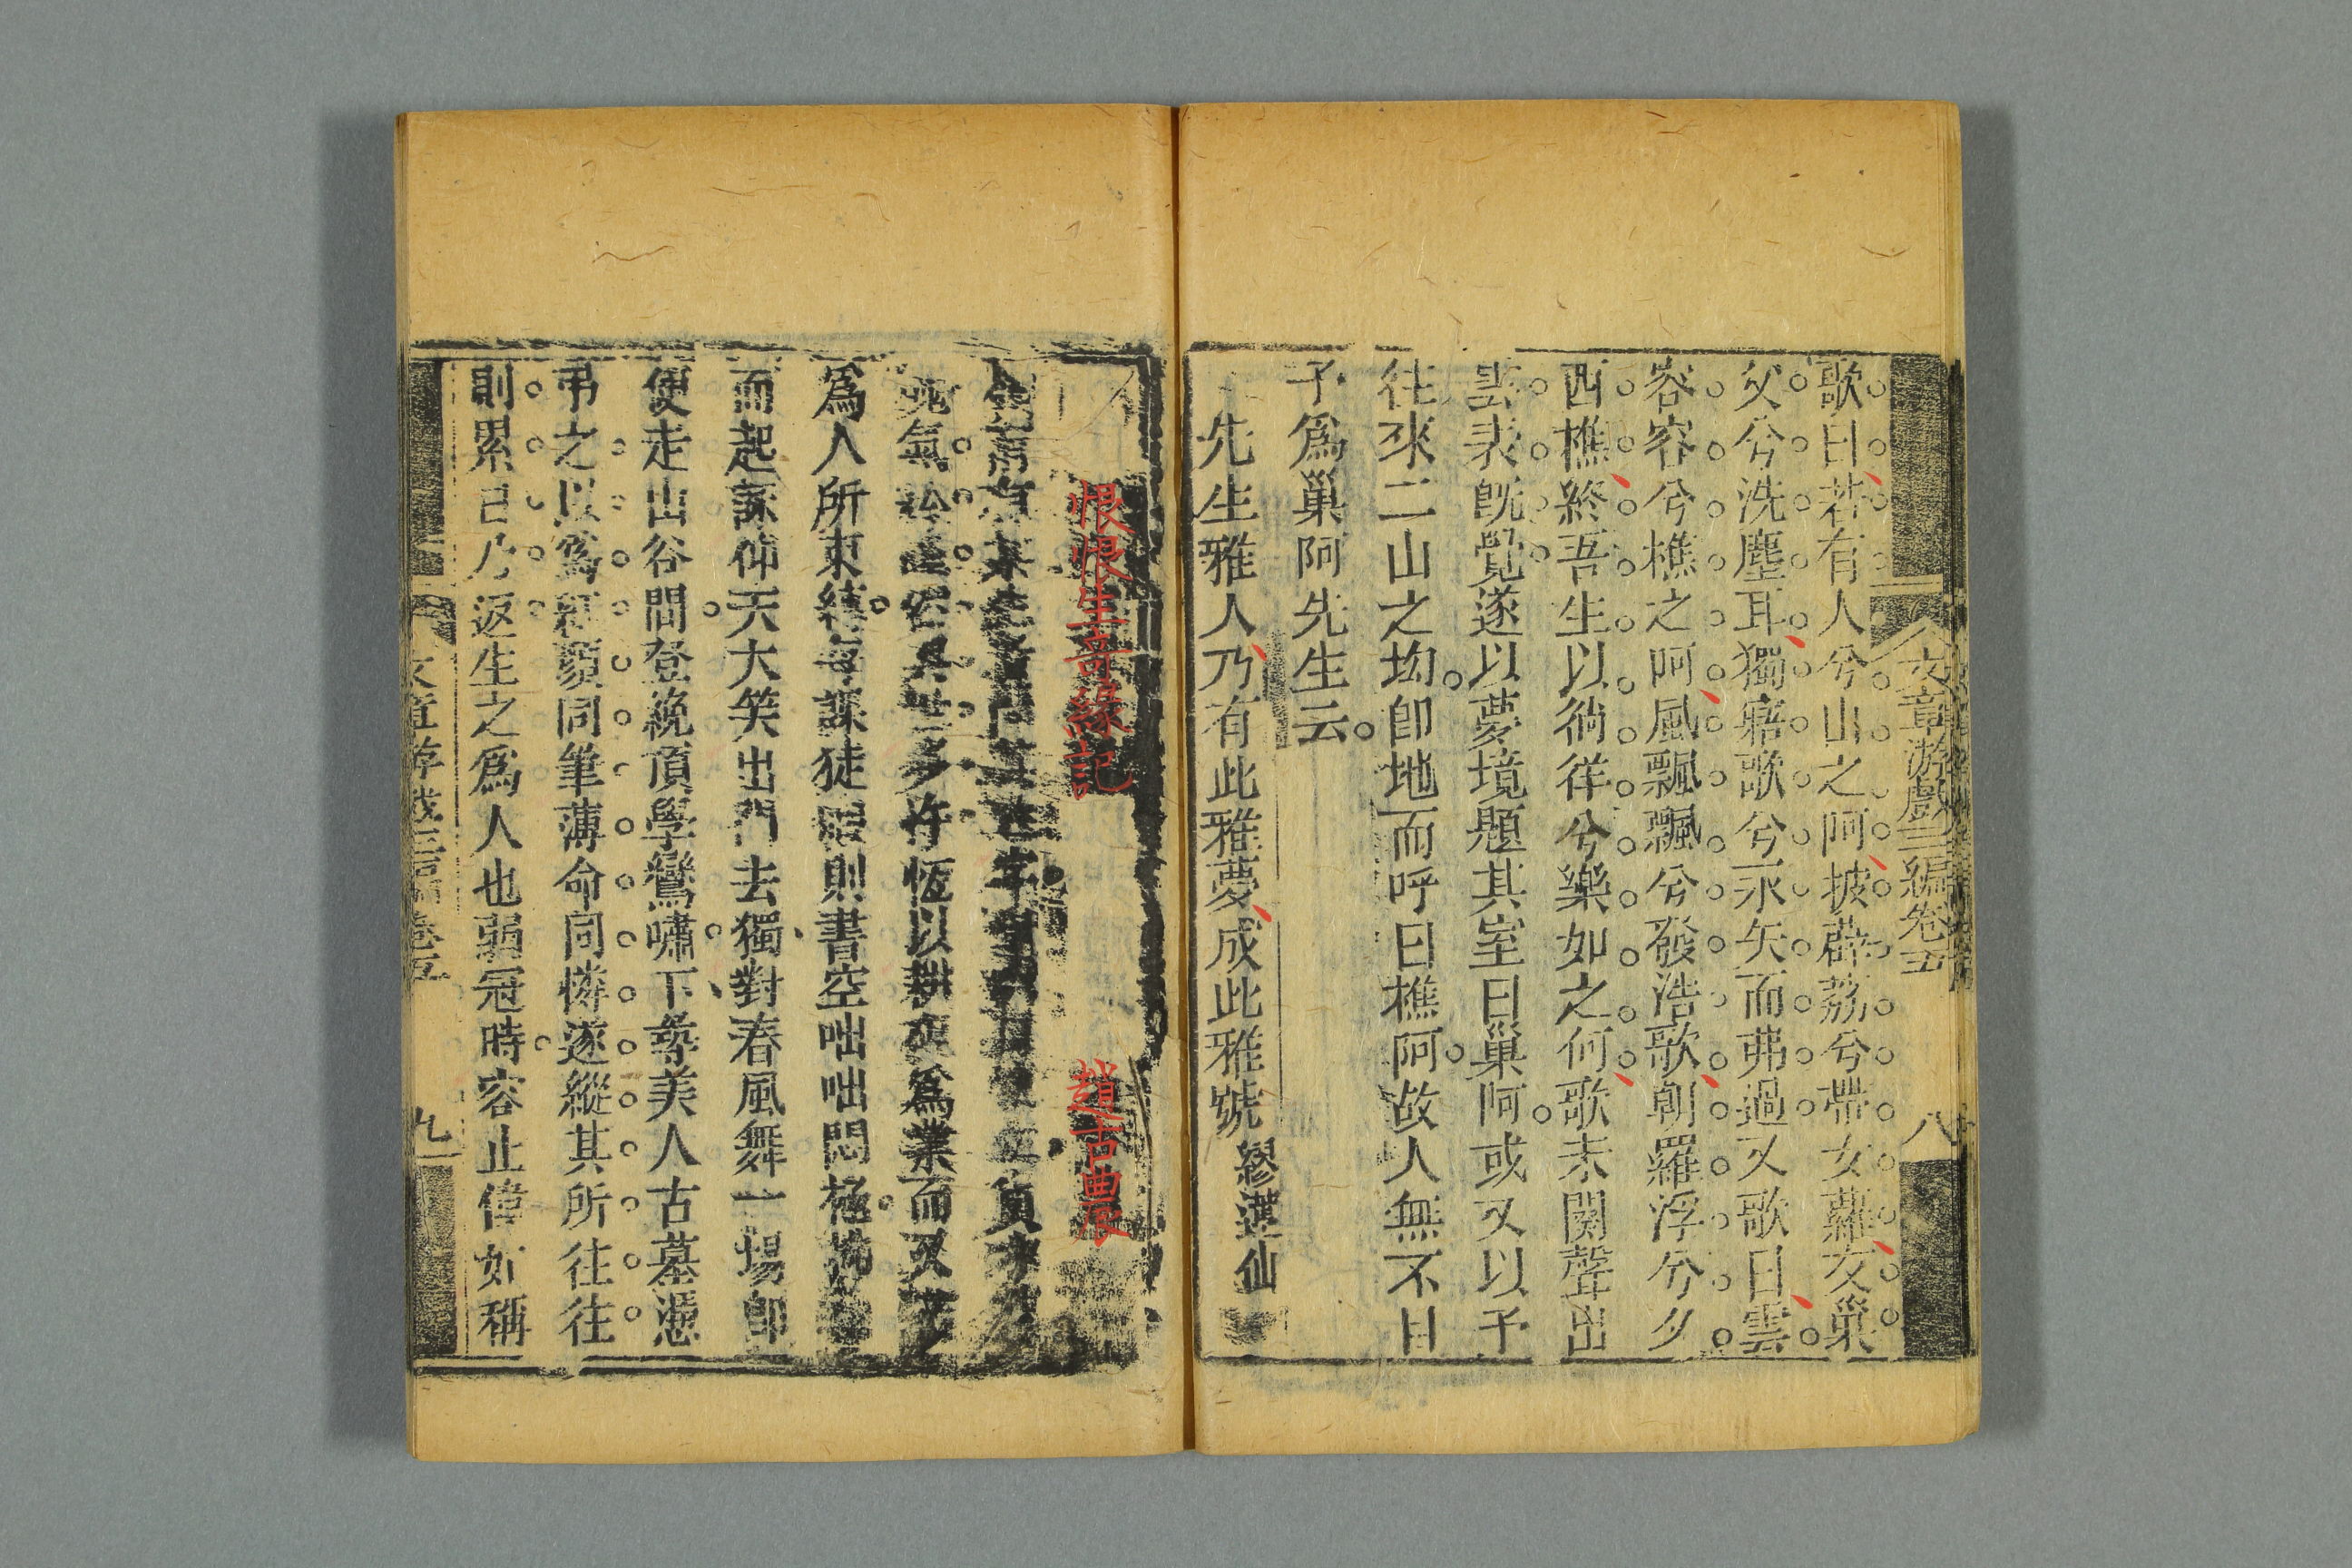 文章游戲三編卷五
八
歌曰若有人兮山之阿披薜荔兮帶女蘿友巢
父兮洗塵耳獨寤歌兮永矢而弗過又歌曰雲
容容兮樵之阿風飄飄兮發浩歌朝羅浮兮夕
西樵終吾生以徜徉兮樂如之何歌未闋聲出
雲表旣覺遂以夢境題其室曰巢阿或又以予
往來二山之均卽地而呼曰樵阿故人無不目
予爲巢阿先生云
先生雅人乃有此雅夢成此雅號 繆蓮仙
恨恨生奇緣記
趙古農
氣
多許恆以耕硯爲業而又
爲人所束縛每課徒暇則書空咄咄悶極
而起詠仰天大笑出門去獨對春風舞一場卽
便走山谷間登絶頂學鸞嘯下尋美人古墓憑
弔之以爲紅顏同筆薄命同憐遂縱其所往往
則累日乃返生之爲人也弱冠時容止偉如稱
文章游戲三編卷五
九